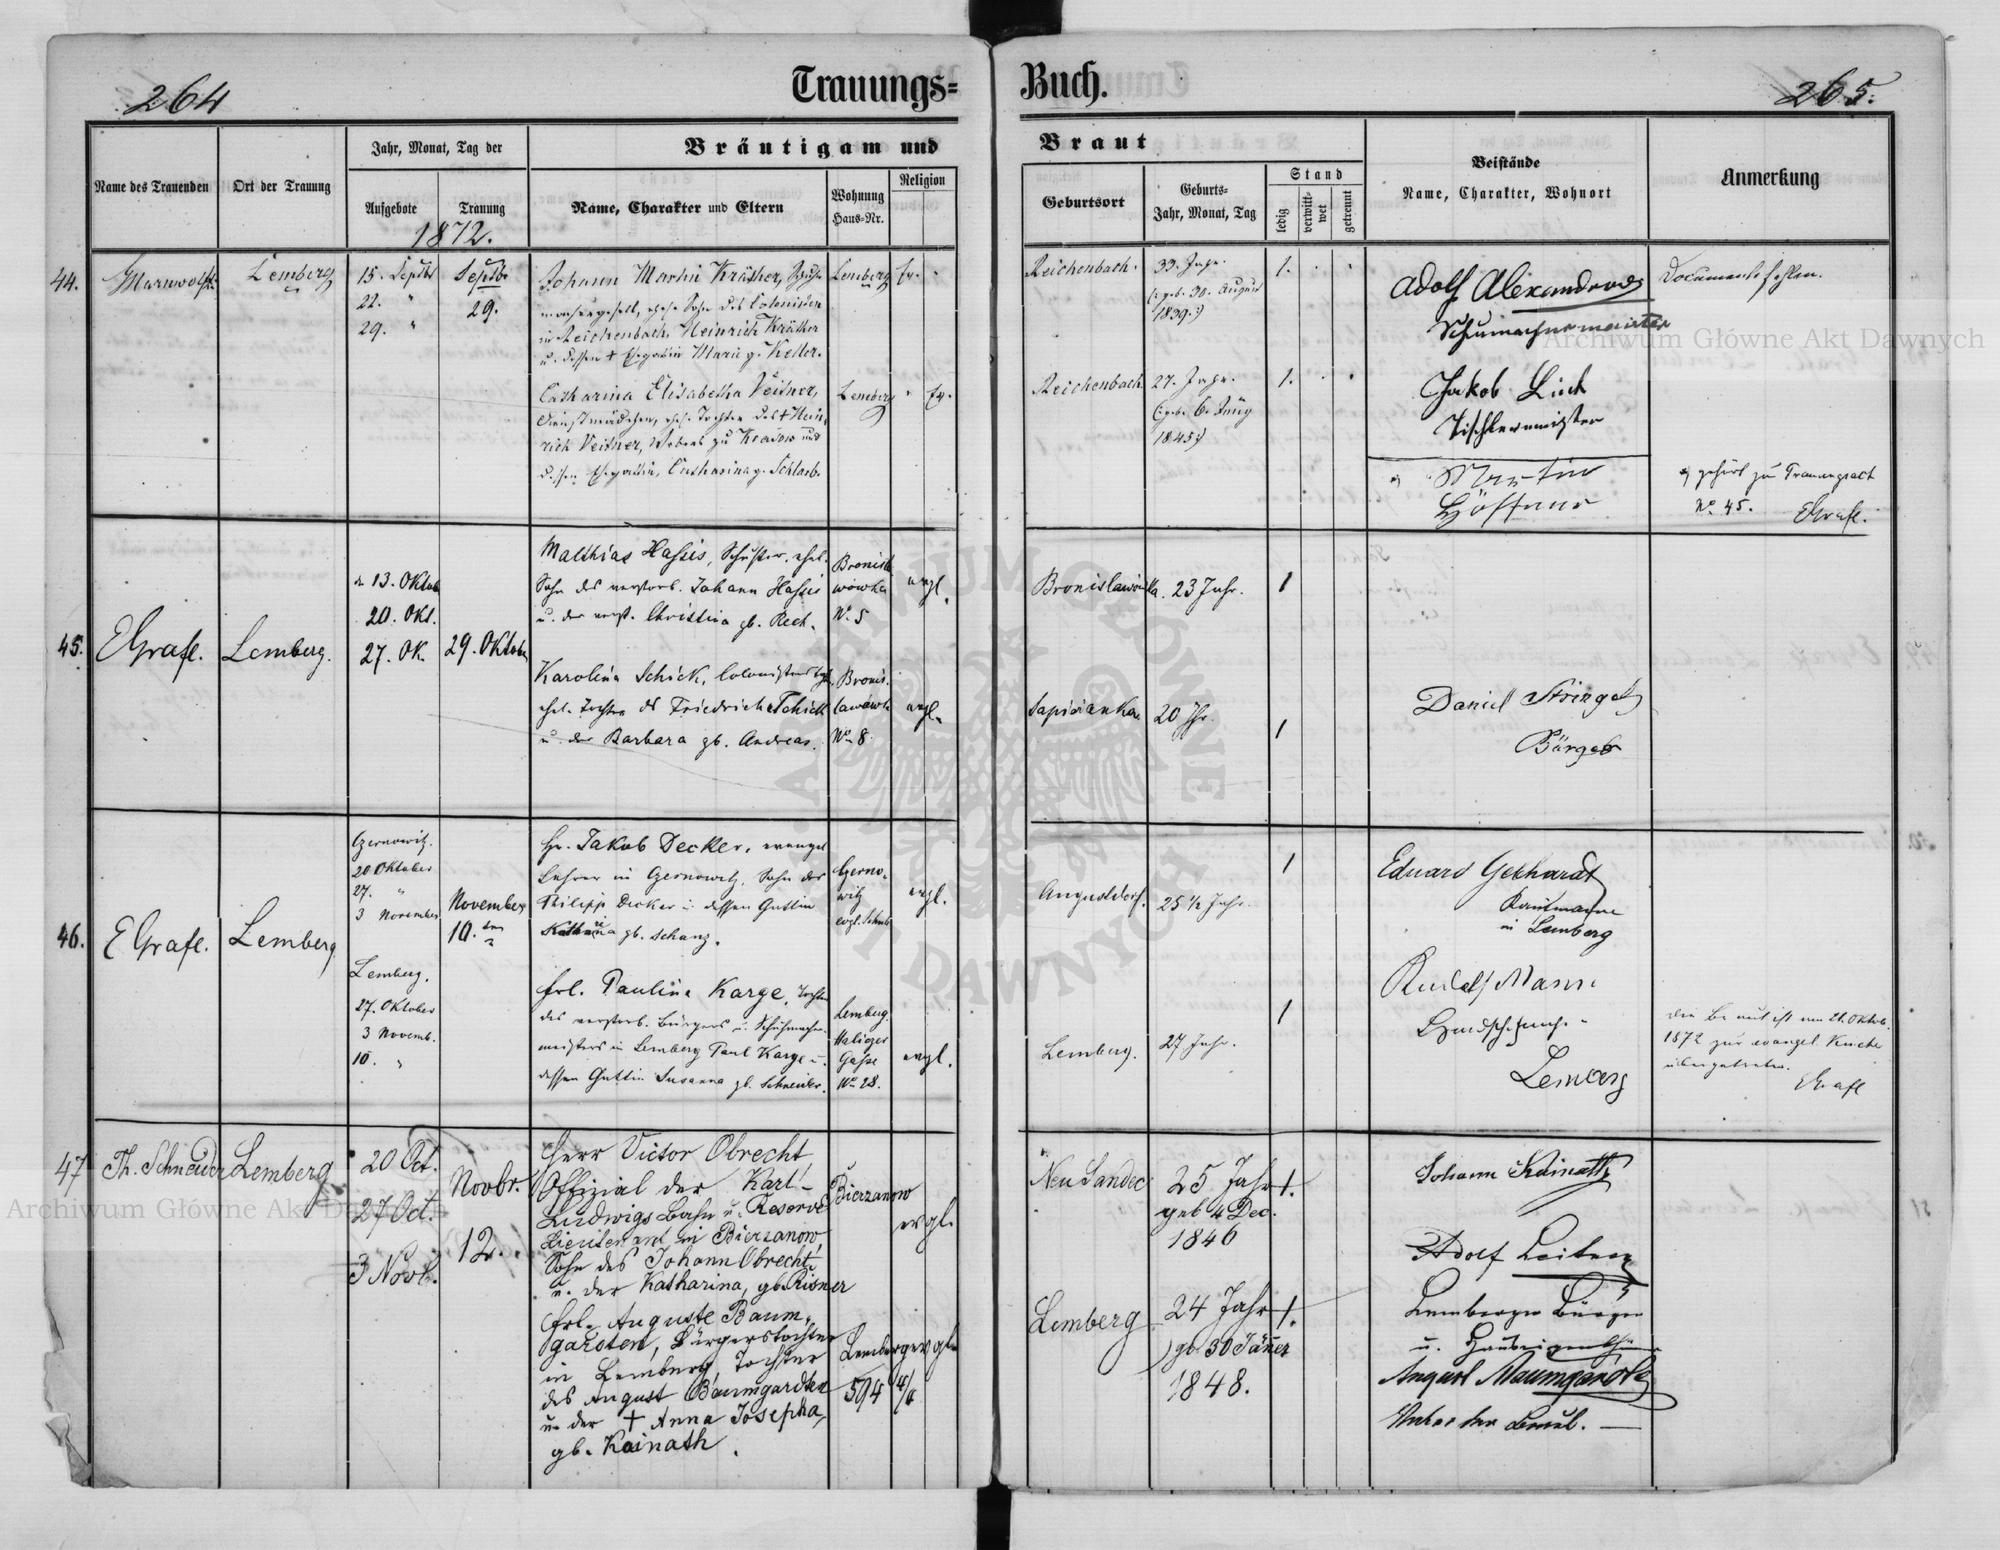 264
Trauungs=
Name des Trauenden
Ort der Trauung
Jahr, Monat, Tag der
Aufgebote
Trauung
1872.
Bräutigam und
Name, Charakter und Eltern
Wohnung
Haus-Nr.
Religion
44.
Lemberg
15. Septbr
22. "
29. "
Septbr
29.
Johann Martin Kräther,
ehel. Sohn des Colonisten
in Reichenbach, Heinrich Kräther
u. dessen + Ehegattin Maria g. Keller.
Lemberg
Catharina Elisabetha Veitner,
Dienstmädchen, ehel. Tochter des + Hein
rich Veitner, Webers zu
dessen Ehegattin, Catharina g. Schlarb.
Lemberg
45.
EGrafl.
Lemberg.
13. Oktob
20. Okt.
27. Ok.
29. Oktober
Matthias Hassis, Schuster, ehel.
Sohn des verstorb. Johann Hassis
u. der verst. Christina gb. Rech.
Bronisła
wówka
No. 5
evgl.
Karolina Schick, Colonistens
ehel. Tochter des Friedrich Schick
u. der Barbara gb. Andreas.
Bronis.
lawówka
No. 8.
evgl.
46.
EGrafl.
Lemberg.
Czernowitz.
20 Oktober
27. "
3 November
Lemberg.
27. Oktober
3 Novemb.
10. "
November
10.
Hr. Jakob Decker, evangel
Lehrer in Czernowitz, Sohn des
Philipp Decker u. dessen Gattin
Katharina gb. Schanz.
Czerno-
witz
evgl. Schule
evgl.
Frl. Paulina Karge, Tochter
des verstorb. Bürgers u. Schuhmacher-
meisters in Lemberg Paul Karge u.
dessen Gattin Susanna gb. Schneider.
Lemberg.
Haliczer
Gasse
No. 28.
evgl.
47
Th. Schneider
Lemberg
20 Oct.
27 Oct.
3 Novb.
Novbr.
12.
Herr Victor Obrecht
Offizial der Karl-
Ludwigs Bahn u. Reserve
Lieutenant in Bierzanow
Sohn des Johann Obrecht
u. der Katharina, gb. Risner
Bierzanow
evgl.
Frl. Auguste Baum-
garsten, Bürgerstochter
in Lemberg Tochter
des August Baumgardten
u. der + Anna Josepha,
gb. Kainath.
Lemberg
594 4/4
evgl.
Buch.
265.
Braut
Geburtsort
Geburts=
Jahr, Monat, Tag
Stand
ledig
verwitt-
wet
getrennt
Beistände
Name, Charakter, Wohnort
Anmerkung
Reichenbach.
33. Jahr.
(: geb. 30. August
1839 :)
1.
Adolf Alexandrowicz
Schuhmachermeister
Documente fehlen.
Reichenbach.
27. Jahr.
(: geb. 6. Juny
1845 :)
1.
Jakob Link
Tischlermeister
Martin
Höffner
gehört zu Trauungsact
No. 45. EGrafl.
Bronislawówka.
23 Jahr.
1
Sapieżanka
20 Jhr.
1
Daniel Stringel
Bürger
Augustdorf.
25 1/2 Jahr.
1
Eduard Gebhardt
Kaufmann
in Lemberg
Lemberg.
27 Jahr.
1
Rudolf Mann
Lemberg
Die Braut ist am 21. Oktob.
1872 zur evangel. Kirche
übergetreten.
EGrafl
Neu Sandec
25 Jahr
geb 4 Dec.
1846
1.
Johann Kainath
Adolf Leitner
Lemberger Bürger
u. Hauseigenthümer
Lemberg
24 Jahr
gb. 30 Jäner
1848.
1.
August Baumgardten
Archiwum Główne Akt Dawnych
Archiwum Główne Akt Dawnych
ARCHIWUM GŁÓWNE AKT DAWNYCH